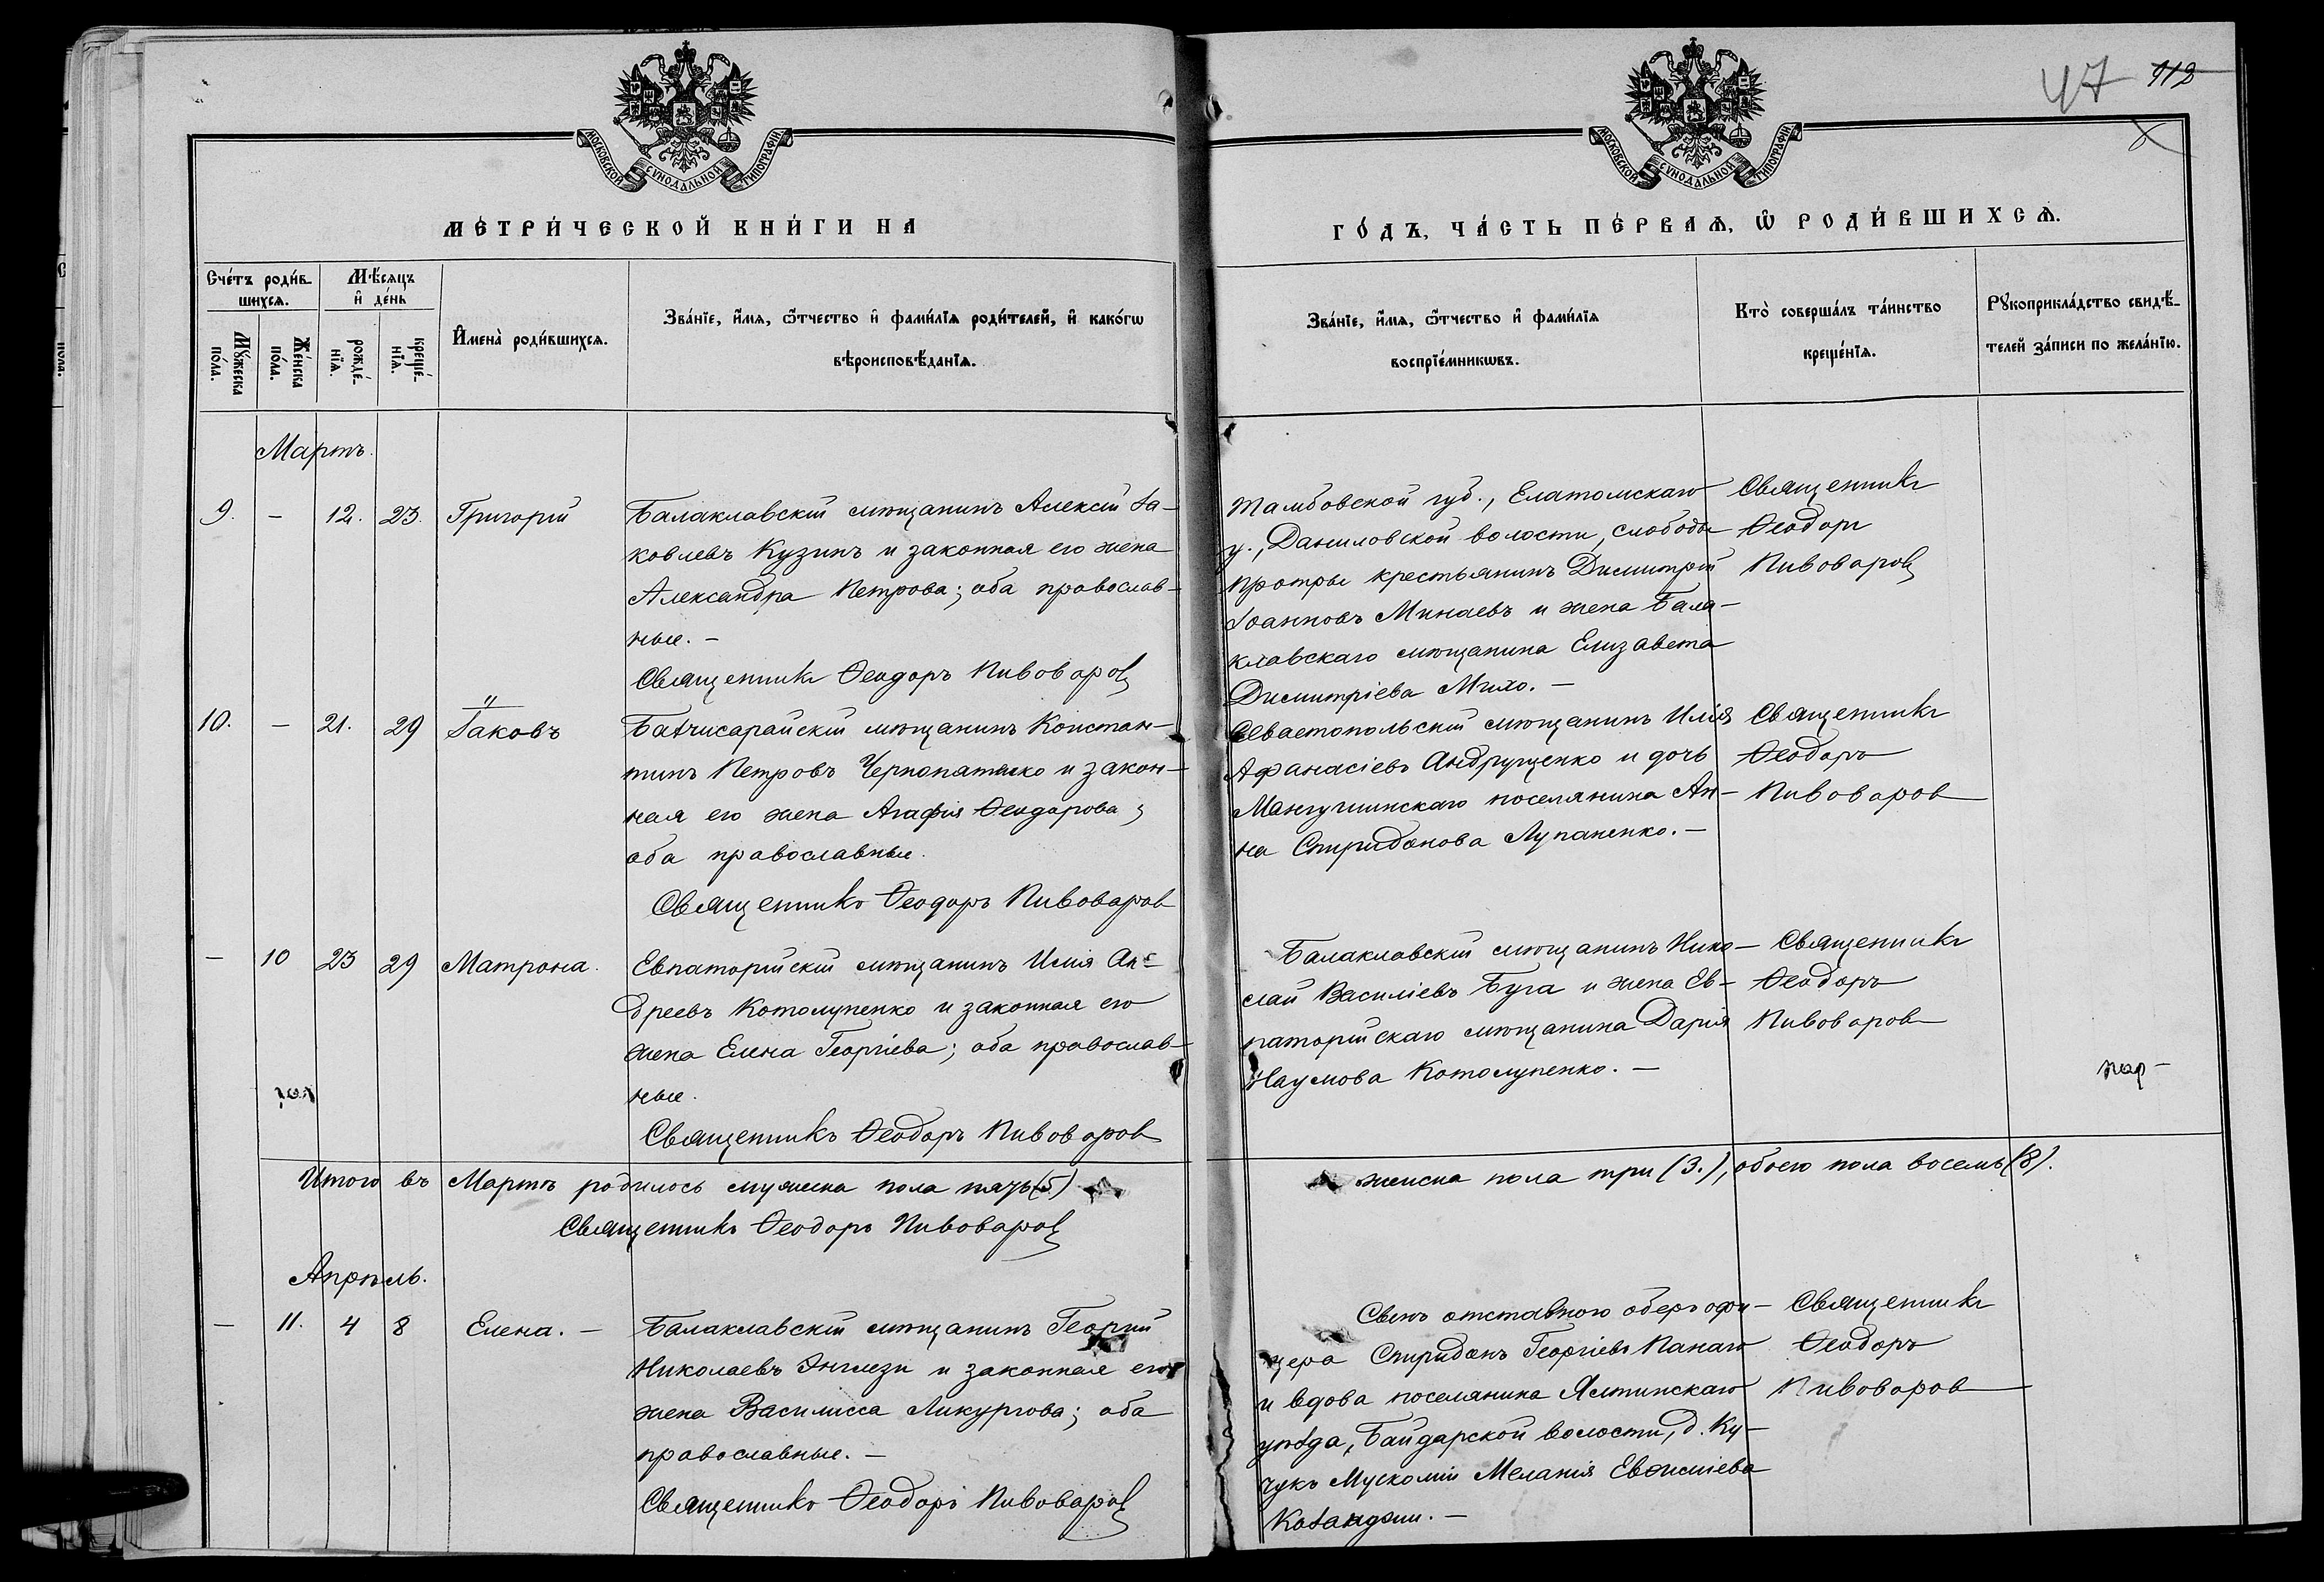 47 112
МОСКОВСКОЙ СѴНОДАЛЬНОЙ ТИПОГРАФІИ
МОСКОВСКОЙ СѴНОДАЛЬНОЙ ТИПОГРАФІИ
МЕ́ТРИ́ЧЕСКОЙ КНИ́ГИ НА
ГО́ДЪ, ЧА́СТЬ ПЕ́РВАѦ, Ѡ҆ РОДИ́ВШИХСѦ.
Сче́тъ роди́в-
шихсѧ.
Мѣ́сѧцъ
и҆ де́нь
Мꙋ́жеска
по́ла.
Же́нска
по́ла.
рожде́-
нїѧ.
креще́-
нїѧ.
И҆мена̀ роди́вшихсѧ.
Зва́нїе, и҆́мѧ, ѻ҆́тчество и҆ фами́лїѧ роди́телей, и҆ како́гѡ
вѣроисповѣ́данїѧ.
Зва́нїе, и҆́мѧ, ѻ҆́тчество и҆ фами́лїѧ
воспрїе́мникѡвъ.
Кто̀ соверша́лъ та́инство
креще́нїѧ.
Рꙋкоприкла́дство свидѣ́-
телей за́писи по жела́нїю.
Мартъ.
9. - 12. 23. Григорій
Балаклавскій мѣщанинъ Алексій Іа-
ковлевъ Кузинъ и законная его жена
Александра Петрова; оба православ-
ные. -
Священникъ Ѳеодоръ Пивоваровъ
Тамбовской губ., Елатомскаго
у., Даниловской волости, слободы
крестьянинъ Димитрій
Іоанновъ Минаевъ и жена Бала-
клавскаго мѣщанина Елизавета
Димитріева
Священникъ
Ѳеодоръ
Пивоваровъ
10. - 21. 29 Іаковъ
Бахчисарайскій мѣщанинъ Констан-
тинъ Петровъ Чернопятко и закон-
ная его жена Агафія Ѳеодорова;
оба православные.
Священникъ Ѳеодоръ Пивоваров
Севастопольскій мѣщанинъ Илія
Афанасіевъ Андрущенко и дочь
Мангушинскаго поселянина Ан-
на Спиридонова Лупаненко. -
Священникъ
Ѳеодоръ
Пивоваров
- 10 23 29 Матрона.
Евпаторійскій мѣщанинъ Илія Ан-
дреевъ Котолупенко и законная его
жена Елена Георгіева; оба православ-
ные.
Священникъ Ѳеодоръ Пивоваров
Балаклавскій мѣщанинъ Нико-
лай Василіевъ Буга и жена Ев-
паторійскаго мѣщанина Дарія
Наумова Котолупенко. -
Священникъ
Ѳеодоръ
Пивоваров
Итого въ Мартѣ родилось мужеска пола пять (5)
женска пола три (3.), обоего пола восемь (8).
Священникъ Ѳеодоръ Пивоваровъ
Апрѣль.
- 11. 4 8 Елена. -
Балаклавскій мѣщанинъ Георгій
Николаевъ Инглези и законная его
жена Василисса Ликургова; оба
православные. -
Священникъ Ѳеодоръ Пивоваровъ
Сынъ отставного оберъ офи-
цера Спиридонъ Георгіевъ Папаго
и вдова поселянина Ялтинскаго
уѣзда, Байдарской волости, д. Ку-
чукъ Мускомія Меланія
Священникъ
Ѳеодоръ
Пивоваров